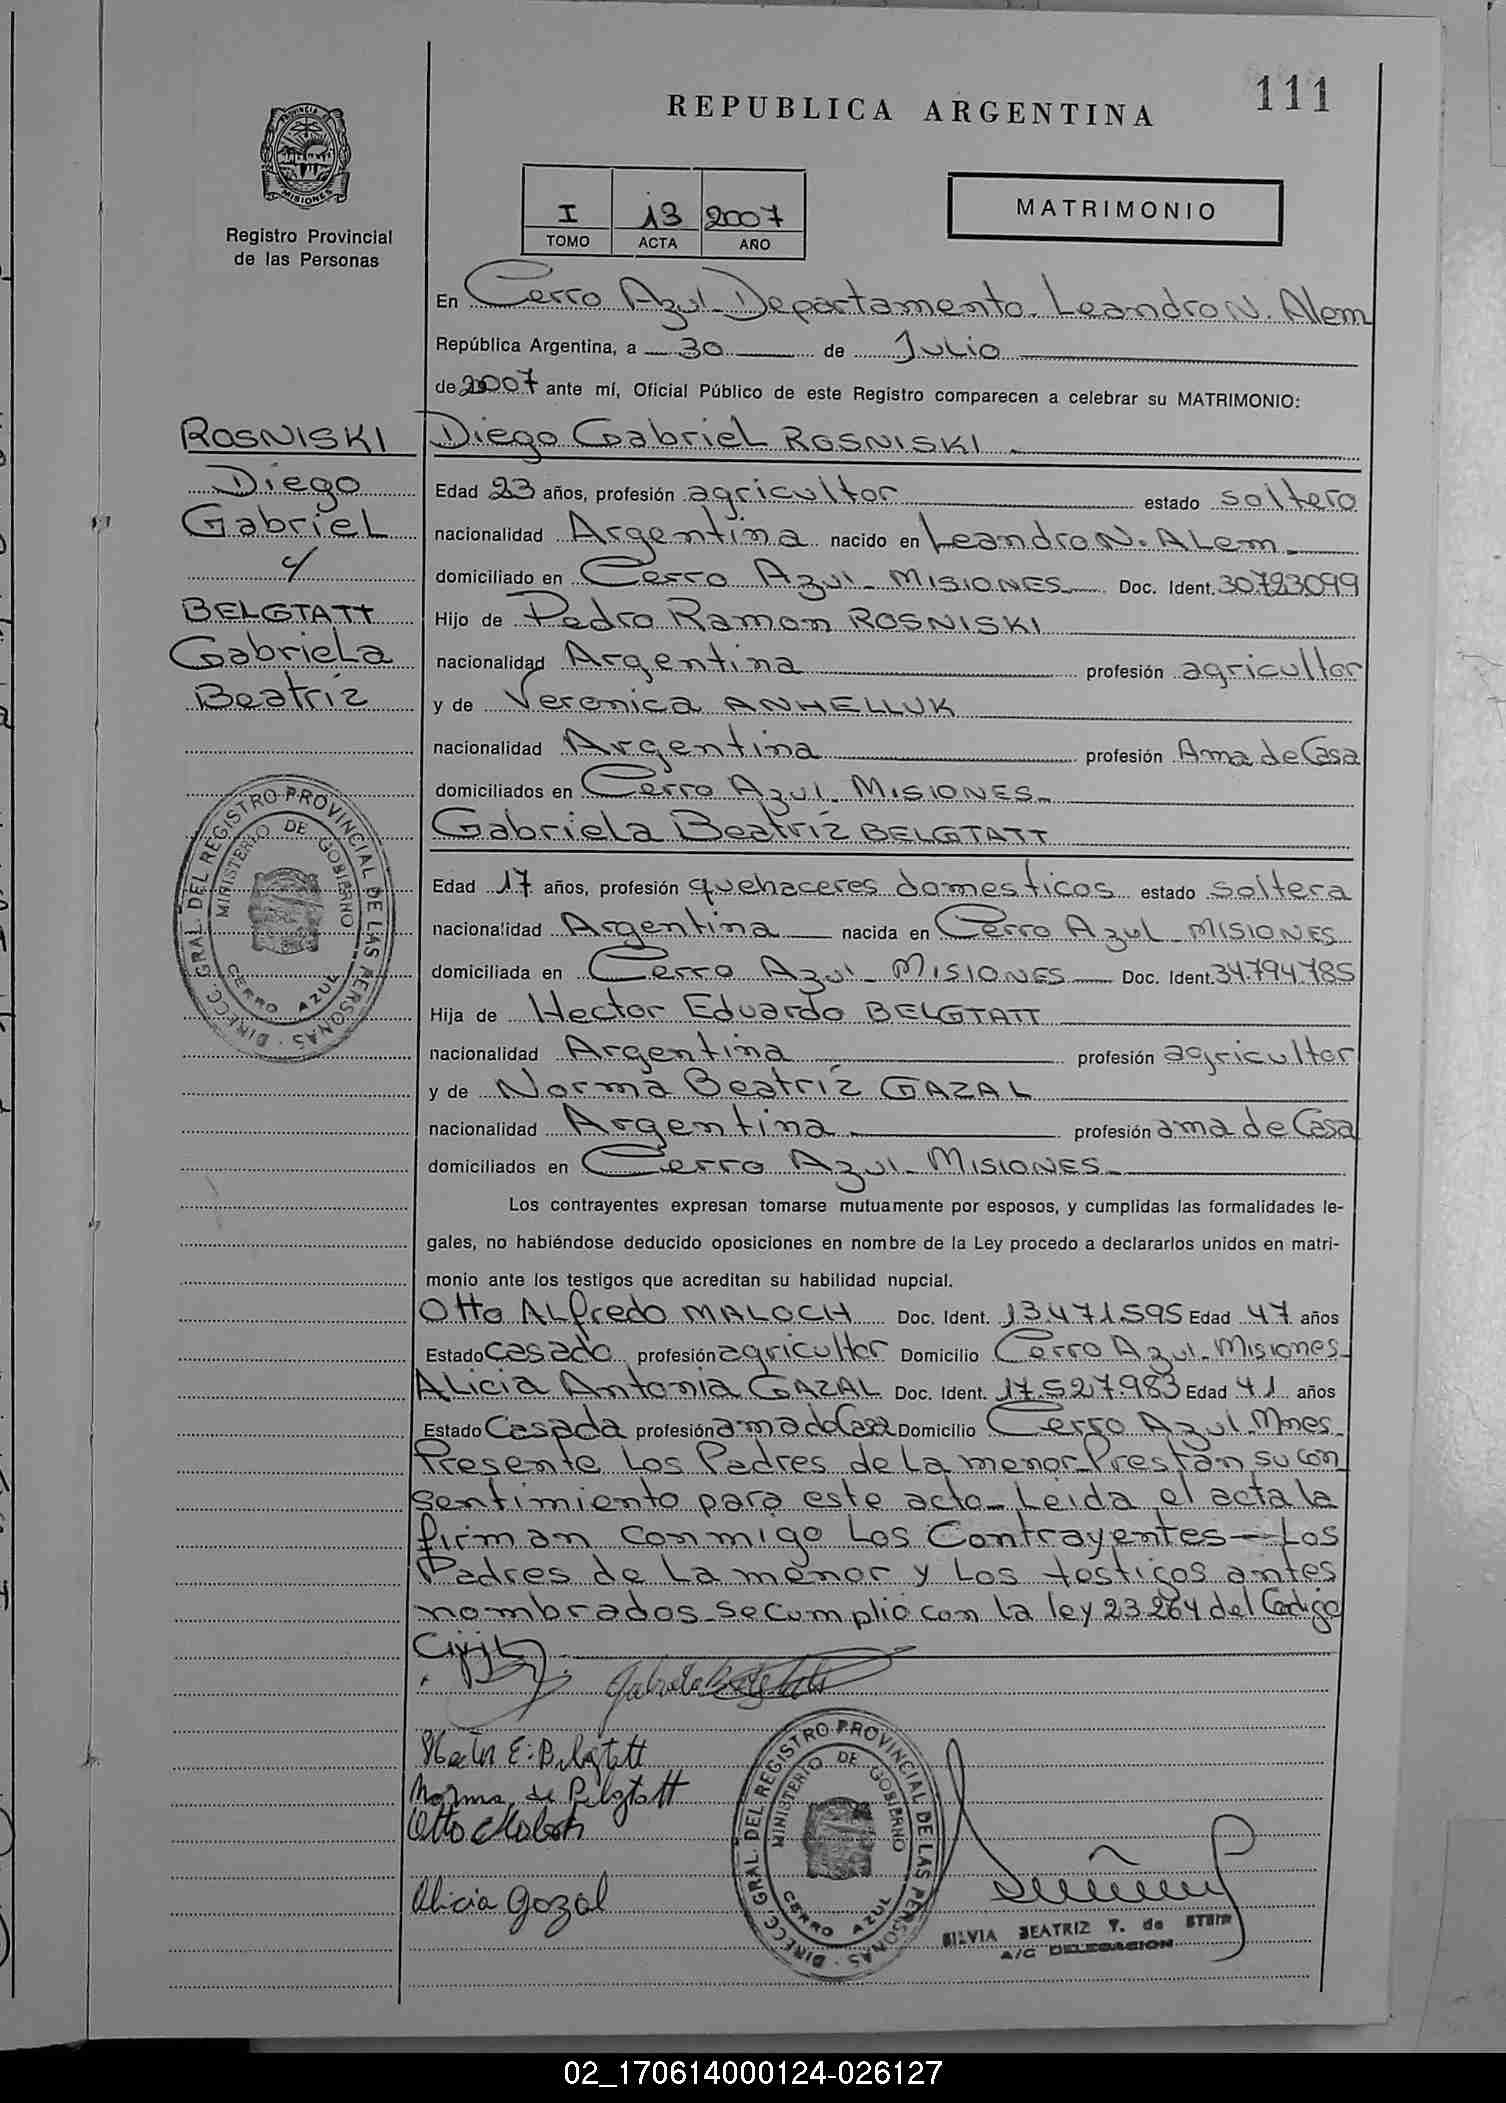 111
REPUBLICA ARGENTINA
PROVINCIA DE
MISIONES
Registro Provincial
de las Personas
I 13 2007
TOMO ACTA AÑO
MATRIMONIO
En Cerro Azul - Departamento Leandro N. Alem
República Argentina, a 30 de Julio
de 2007 ante mí, Oficial Público de este Registro comparecen a celebrar su MATRIMONIO:
ROSNISKI
Diego
Gabriel
y
BELGTATT
Gabriela
Beatríz
Diego Gabriel ROSNISKI
Edad 23 años, profesión agricultor estado soltero
nacionalidad Argentina nacido en Leandro N. Alem
domiciliado en Cerro Azul - MISIONES Doc. Ident. 30.723.099
Hijo de Pedro Ramon ROSNISKI
nacionalidad Argentina profesión agricultor
y de Veronica ANHELLUK
nacionalidad Argentina profesión Ama de Casa
domiciliados en Cerro Azul - MISIONES
Gabriela Beatríz BELGTATT
Edad 17 años, profesión quehaceres domesticos estado soltera
nacionalidad Argentina nacida en Cerro Azul - MISIONES
domiciliada en Cerro Azul - MISIONES Doc. Ident. 34.794.785
Hija de Hector Eduardo BELGTATT
nacionalidad Argentina profesión agricultor
y de Norma Beatríz GAZAL
nacionalidad Argentina profesión ama de Casa
domiciliados en Cerro Azul - MISIONES
Los contrayentes expresan tomarse mutuamente por esposos, y cumplidas las formalidades le-
gales, no habiéndose deducido oposiciones en nombre de la Ley procedo a declararlos unidos en matri-
monio ante los testigos que acreditan su habilidad nupcial.
Otto Alfredo MALOCH Doc. Ident. 13.471.595 Edad 47 años
Estado casado profesión agricultor Domicilio Cerro Azul - Misiones
Alicia Antonia GAZAL Doc. Ident. 17.527.983 Edad 41 años
Estado Casada profesión ama d Casa Domicilio Cerro Azul - Mnes
Presente Los Padres de La menor Prestan su con
sentimiento para este acto - Leida el acta la
firman conmigo Los Contrayentes - Los
Padres de La menor y Los testigos antes
nombrados - se cumplió con la ley 23.264 del Codigo
Civil
DIRECC. GRAL. DEL REGISTRO PROVINCIAL DE LAS PERSONAS
MINISTERIO DE GOBIERNO
CERRO AZUL
Hector E. Belgtatt
Norma de Belgtatt
Otto Maloch
Alicia Gazal
DIRECC. GRAL. DEL REGISTRO PROVINCIAL DE LAS PERSONAS
MINISTERIO DE GOBIERNO
CERRO AZUL
SILVIA BEATRIZ Y. de STEIN
A/C DELEGACION
02_170614000124-026127